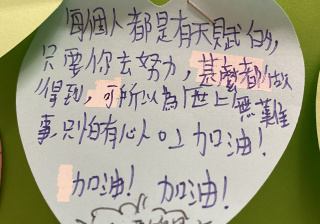 每個人都是有天賦的,
只要你去努力,甚麼都做
得到,可所以為世上無難
事只怕有心人。加油!
加油! 加油!